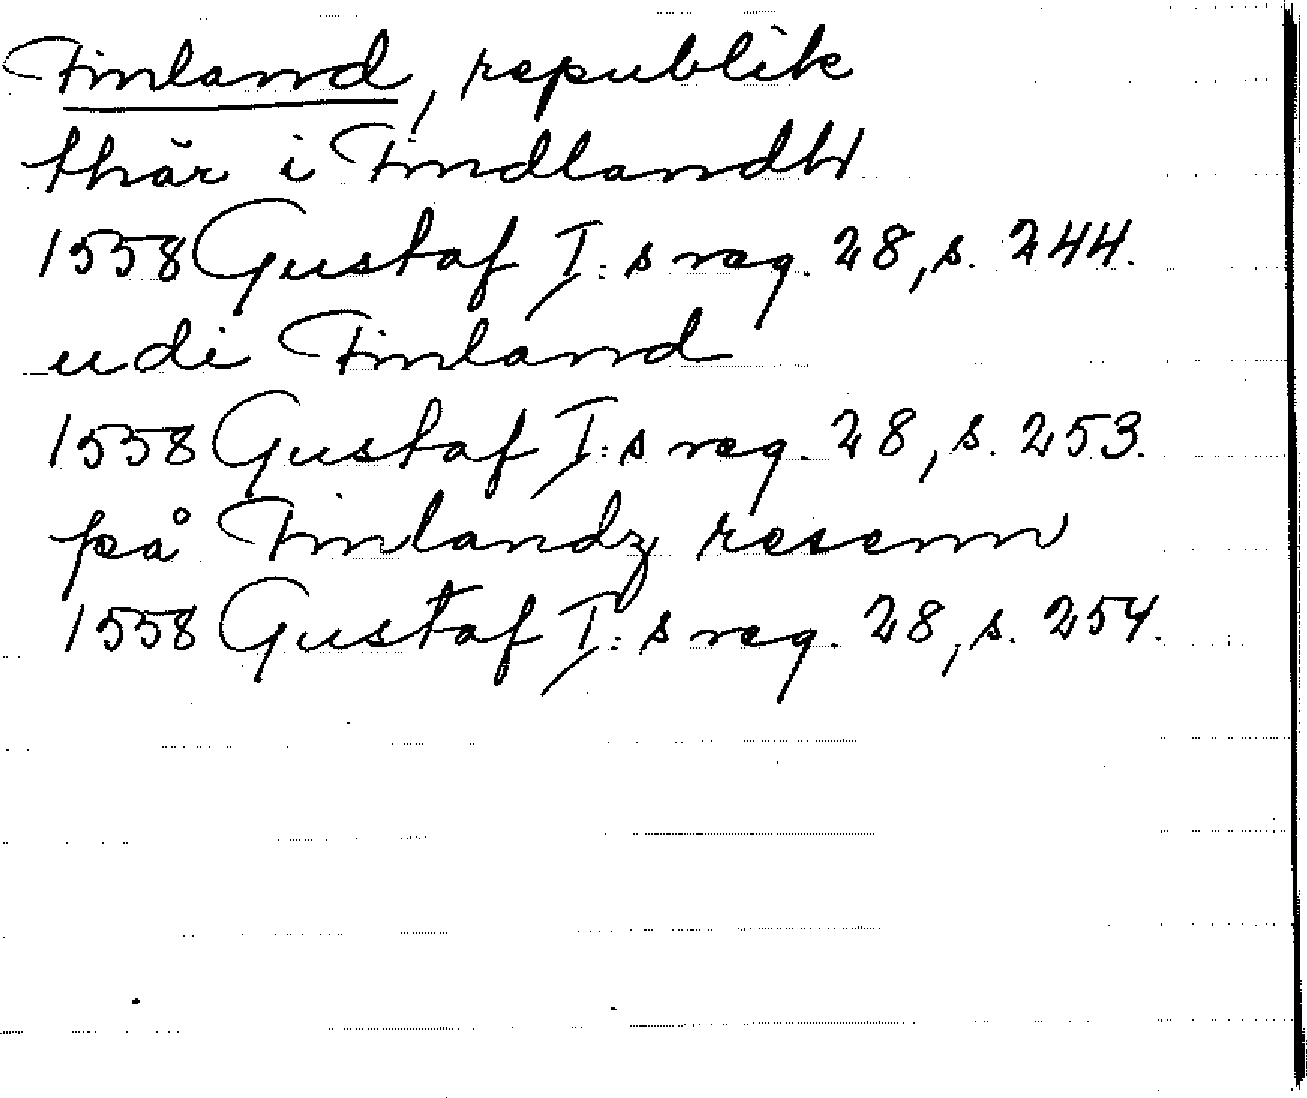 Finland, republik
thär i Findlandh
1558 Gustaf I:s reg. 28, s. 244.
udi Finland
1558 Gustaf I:s reg. 28, s. 253.
på Finlandz resenn
1558 Gustaf I:s reg. 28, s. 254.